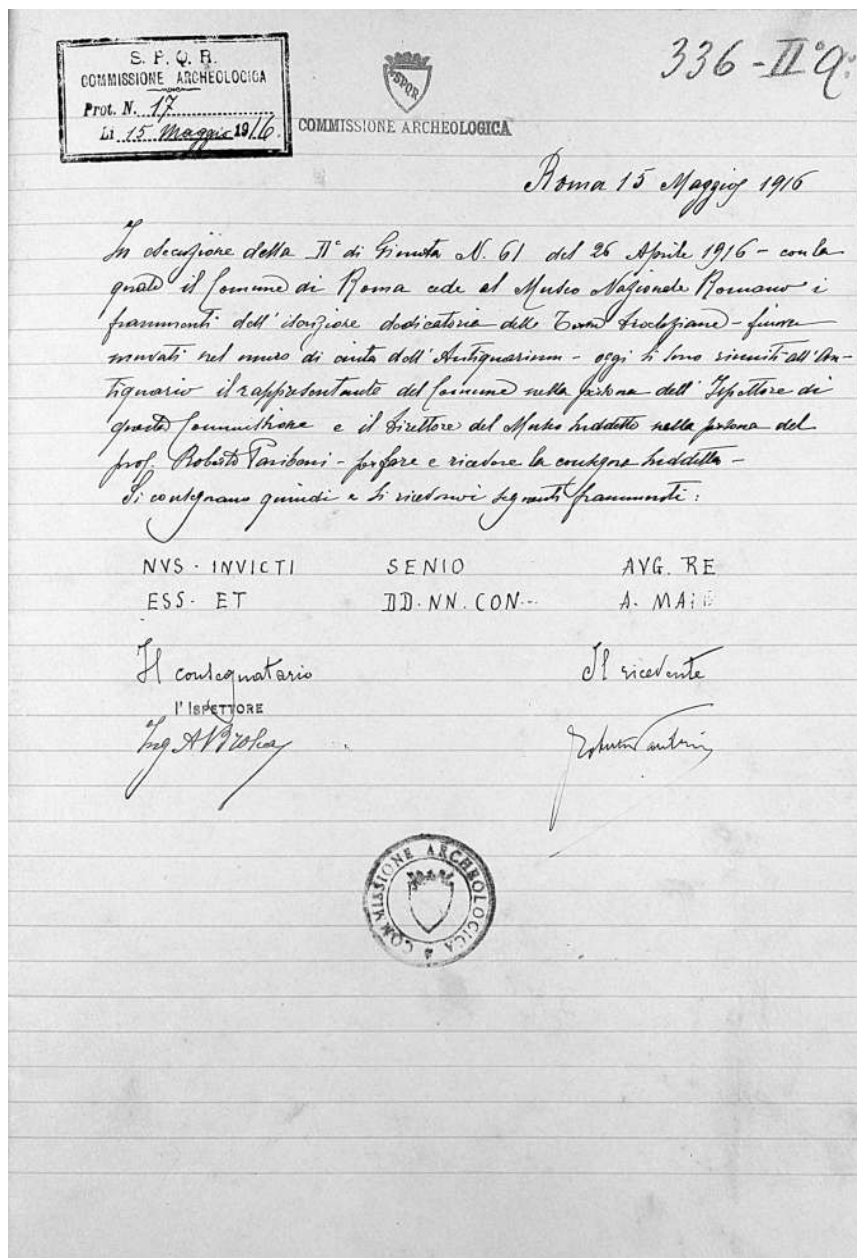 S. P. Q. R.
COMMISSIONE ARCHEOLOGICA
Prot. N. 17
Li 15 Maggio 1916.
336 - II°
SPQR
COMMISSIONE ARCHEOLOGICA
Roma 15 Maggio 1916
In esecuzione della II° di Giunta N. 61 del 26 Aprile 1916 - con la
quale il Comune di Roma cede al Museo Nazionale Romano i
frammenti dell' iscrizione dedicatoria delle Terme Diocleziane - finora
murati nel muro di cinta dell' Antiquarium - oggi si sono riuniti all' An-
tiquario il rappresentante del Comune nella persona dell' Ispettore di
questa Commissione e il Direttore del Museo suddetto nella persona del
prof. Roberto Paribeni - per fare e ricevere la consegna suddetta -
Si consegnano quindi e si ricevono i seguenti frammenti :
NVS · INVICTI SENIO AVG. RE
ESS · ET DD · NN. CON... A. MAI
Il consegnatario Il ricevente
l' ISPETTORE
Ing A
COMMISSIONE ARCHEOLOGICA